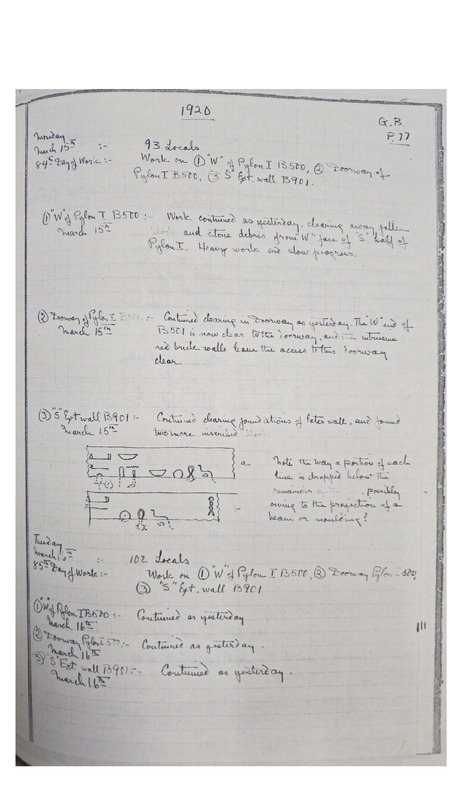 1920
G.B
P.77
Monday
March 15th :-
84th Day of Work :-
93 Locals
Work on ① "W" of Pylon I B500, ② Doorway of
Pylon I B500, ③ "S" Ext. wall B901.
① "W" of Pylon I B500 :- Work continued as yesterday, clearing away fallen
March 15th and stone debris from "W" face of "S" half of
Pylon I. Heavy work and slow progress.
② Doorway of Pylon I :- Continued clearing in Doorway as yesterday. The "W" end of
March 15th B.501 is now clear to the doorway, and the intrusive
red brick walls leave the access to this doorway
clear.
③ "S" Ext wall B901 :- Continued clearing foundations of later wall, and found
March 15th two more inscribed
a.
Note the way a portion of each
line is dropped below the
remainder possibly
owing to the projection of a
beam or moulding?
Tuesday
March :-
85th Day of Work :-
102 Locals
Work on ① "W" of Pylon I B500, ② Doorway Pylon
③ "S" Ext. wall B901
① "W" of Pylon I B500 :- Continued as yesterday
March 16th
② Doorway Pylon :- Continued as yesterday.
March 16th
③ "S" Ext wall B901 :- Continued as yesterday.
March 16th